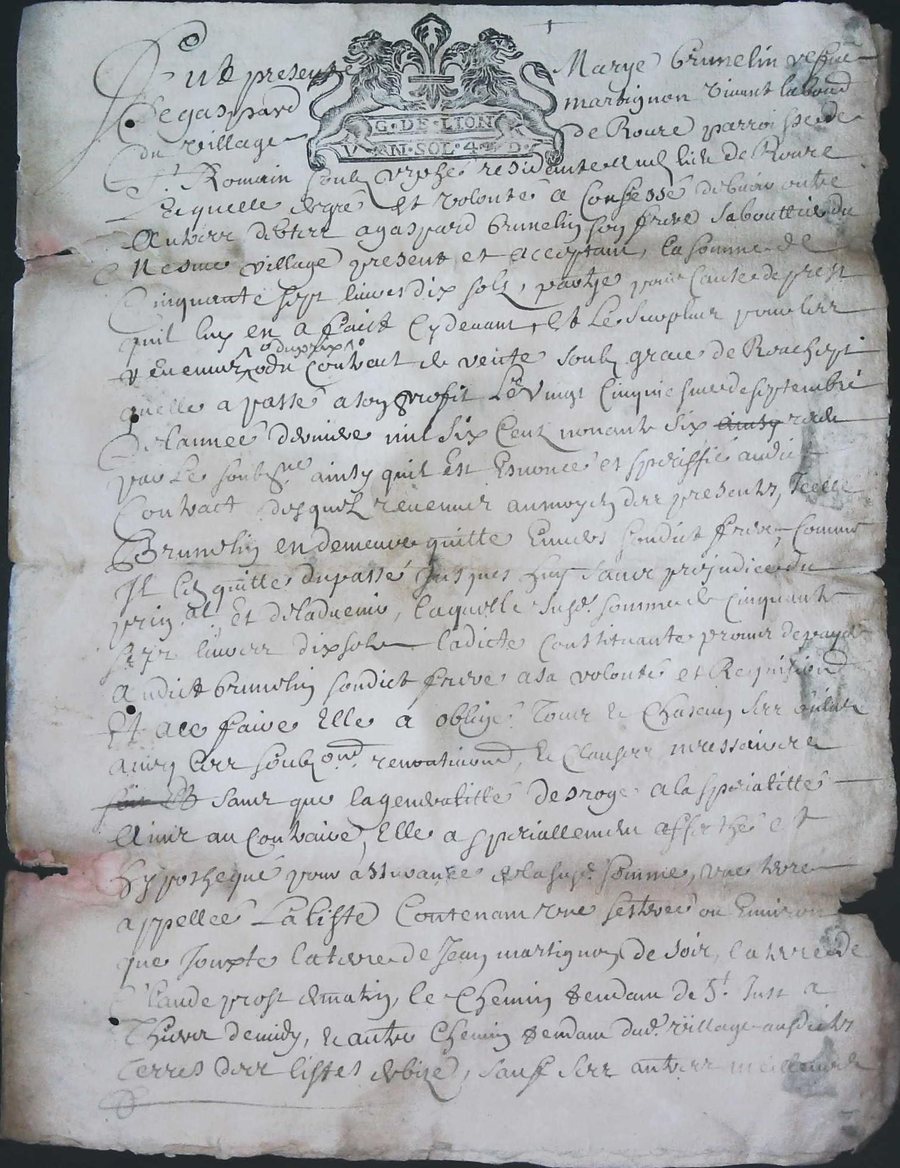 G. DE LION
V N. SOL. 4 D.
Fut presente Marye Brunelin vefue
De gaspard martignon vivant laboureur
du village de Roure parroisse de
St. Romain soubz residente lieu de Roure
Laquelle de gré et volonté a Confessé debvoir
a gaspard Brunelin son frere du
Mesme village present et acceptant, la somme de
Cinquante sept livres dix solz, partye pour Cause de prest
quil luy en a faict Cydevant, Et Le surplus pour les
revenus du prix du Contract de vente soubz grace de Reachept
quelle a passé a son proffit Le Vingt Cinquiesme de septembre
De lannee derniere mil six Cent nonante six receu
par Le soubzne. ainsy quil Est Enoncé et speciffié audict
Contract desquelz revenus au moyen des presentes, icelle
Brunelin en demeure quitte Envers sondict frere, Comme
Il Len quitte du passé jusques huy sans prejudice du
prinal. Et de ladvenir, laquelle susd. somme de Cinquante
sept livres dix solz ladicte Constituante promet de payer
audict Brunelin sondict frere a sa volonté et Requisition
Et a ce faire Elle a obligé Tous & Chacun ses biens
avec les renontiations, & Clauses necessaires
sans que la generalitté desroge a la specialitté
Ains au Contraire, Elle a speciallement affecté et
hypothequé pour assurance de la susd. somme, une terre
appellee La liste Contenant une sesteree ou Environ
que jouxte la terre de Jean martignon de soir, la terre de
Claude prost de matin, le Chemin tendant de St. Just a
Thiers de midy, & autre Chemin tendant dud. village ausdictes
Terres des listes de bize, sauf ses autres meilleures